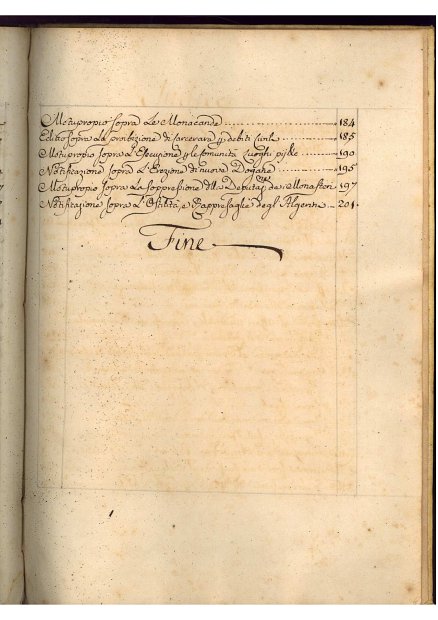 Motupropio sopra Le Monacande ........ 184
Editto sopra La proibizione di carcerare p. debiti Civili ........ 185
Motupropio sopra L'Esecuzione p. le Comunità Luoghi pij &c ........ 190
Notificazione sopra L'Erezione di nuove Dogane ........ 195
Motupropio sopra La Soppressione dlle Deputaz.ni de Monasteri 197
Notificazione sopra L'Ostilità, e Rappresaglie degl'Algerini .. 201
Fine